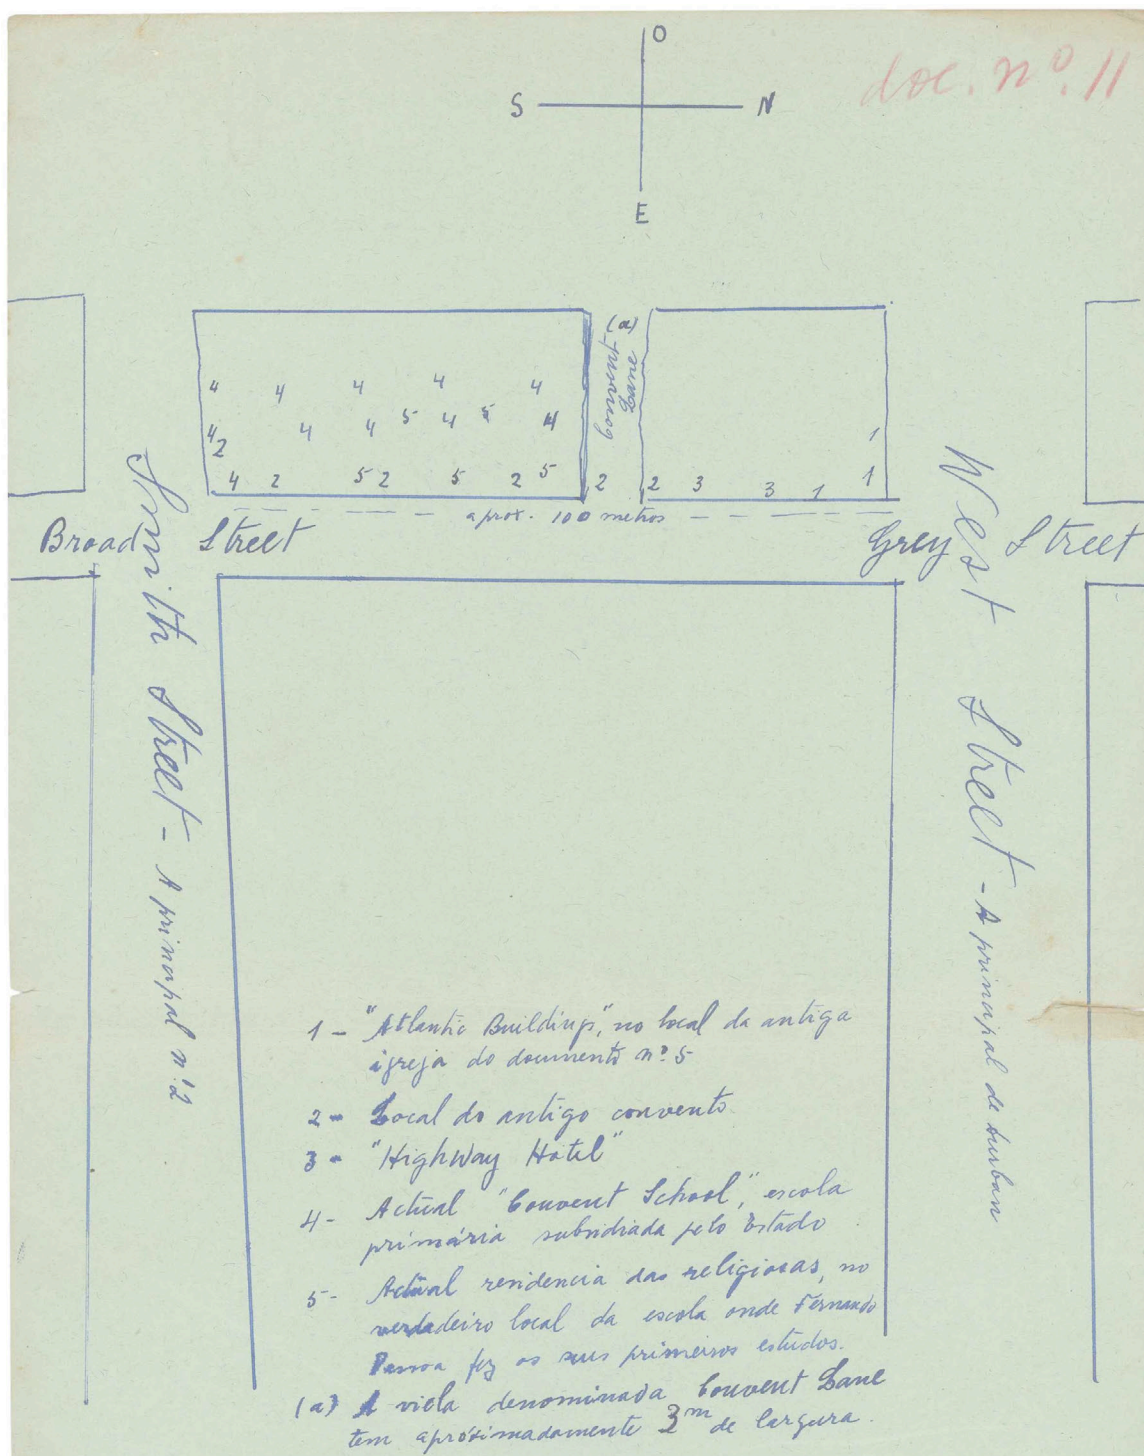 doc. nº. 11
O
S N
E
(a)
Convent
Lane
4 4 4 4 4
4 4 4 5 4 5 4 1
2
4 2 5 2 5 2 5 2 2 3 3 1 1
aprox. 100 metros
Broad Street Grey Street
Smith Street - A principal nº 2
West Street - A principal de Durban
1 - "Atlantic Buildings", no local da antiga
igreja do documento nº 5
2 - Local do antigo convento
3 - "HighWay Hotel"
4 - Actual "Convent School", escola
primária subsidiada pelo Estado.
5 - Actual residencia das religiosas, no
verdadeiro local da escola onde Fernando
Pessoa fez os seus primeiros estudos.
(a) A viela denominada Convent Lane
tem apróximadamente 3m de largura.